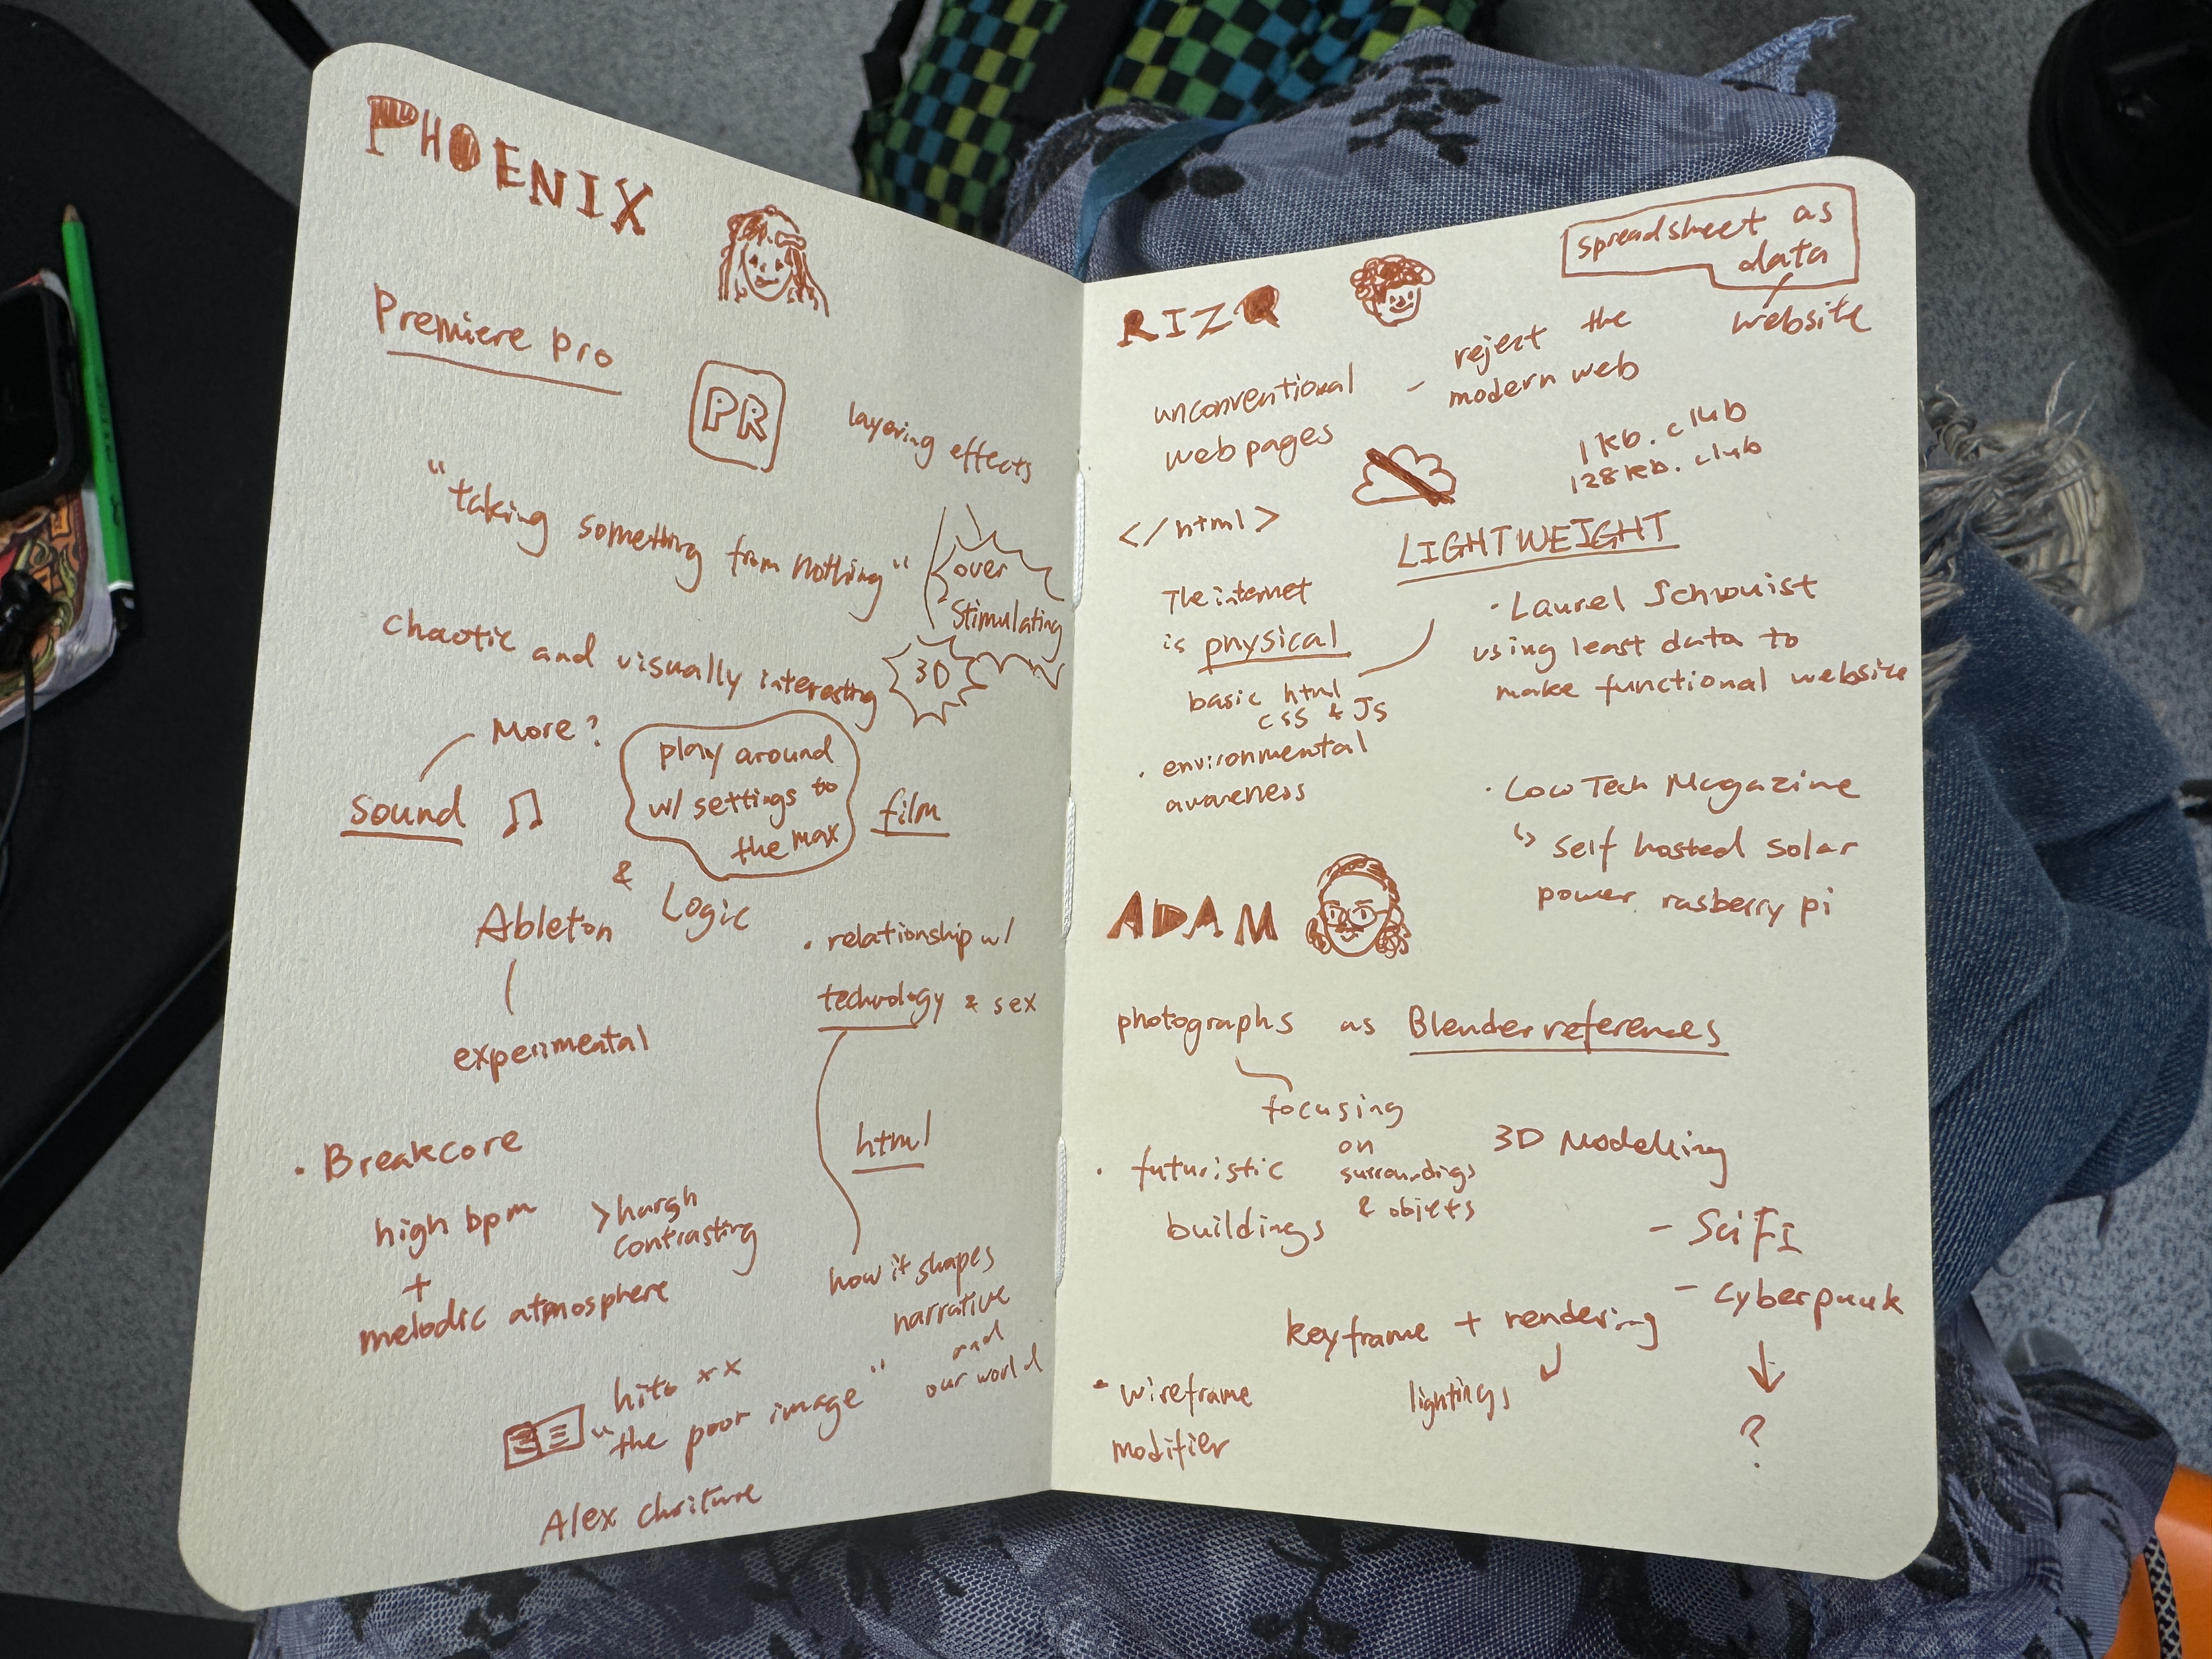 PHOENIX
Premiere Pro
PR
layering effects
"taking something from nothing"
over
stimulating
chaotic and visually interesting
3D
More?
sound
play around
w/ settings to
the max
film
&
Ableton
Logic
experimental
· relationship w/
technology & sex
html
how it shapes
narrative
and
our world
· Breakcore
high bpm
> harsh
contrasting
+
melodic atmosphere
hito xx
"the poor image"
Alex
RIZQ
spreadsheet as
data
website
unconventional
web pages
- reject the
modern web
1kb.club
128kb.club
</html>
LIGHTWEIGHT
The internet
is physical
basic html
css & JS
· environmental
awareness
· Laurel
using least data to
make functional website
· Low Tech Magazine
↳ self hosted solar
power rasberry pi
ADAM
photographs as Blender references
focusing
on
surroundings
& objects
· futuristic
buildings
3D Modelling
- SciFI
- cyberpunk
?
keyframe + rendering
lightings
· wireframe
modifier